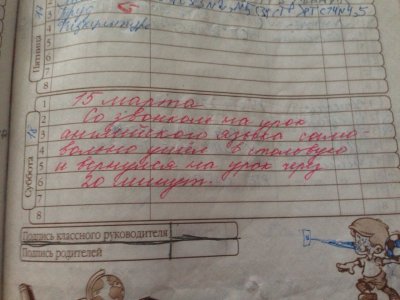 14
Пятница
3 Труд 5
4 Физкультура
5
6
7
8
Суббота
1 15 марта
2 Со звонком на урок
3 английского языка само-
4 вольно ушёл в столовую
5 и вернулся на урок через
6 20 минут.
7
8
Подпись классного руководителя
Подпись родителей